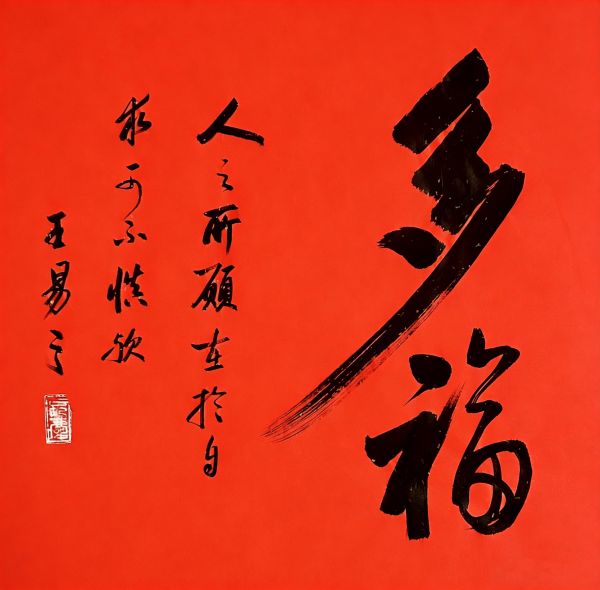 多福
人之所願在於自
求可不慎歟
王易